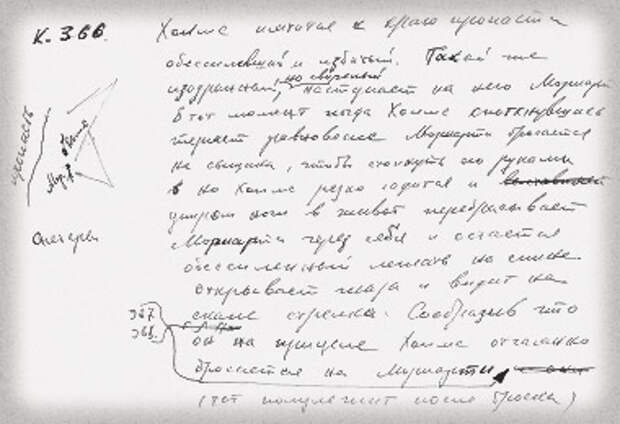 К. 366. Холмс пятится к краю пропасти
обессилевший и избитый. Такой же
изодранный, но свирепый наступает на него Мориарти
В тот момент когда Холмс споткнувшись
теряет равновесие Мориарти бросается
на сыщика, чтобы столкнуть его руками
но Холмс резко садится и
ударом ноги в живот перебрасывает
Мориарти через себя и остается
обессиленный лежать на спине
открывает глаза и видит на
скале стрелка. Сообразив что
он на прицеле Холмс отчаянно
бросается на Мориарти
(тот полулежит после броска)
пропасть
Холмс
Мор.
367.
368.